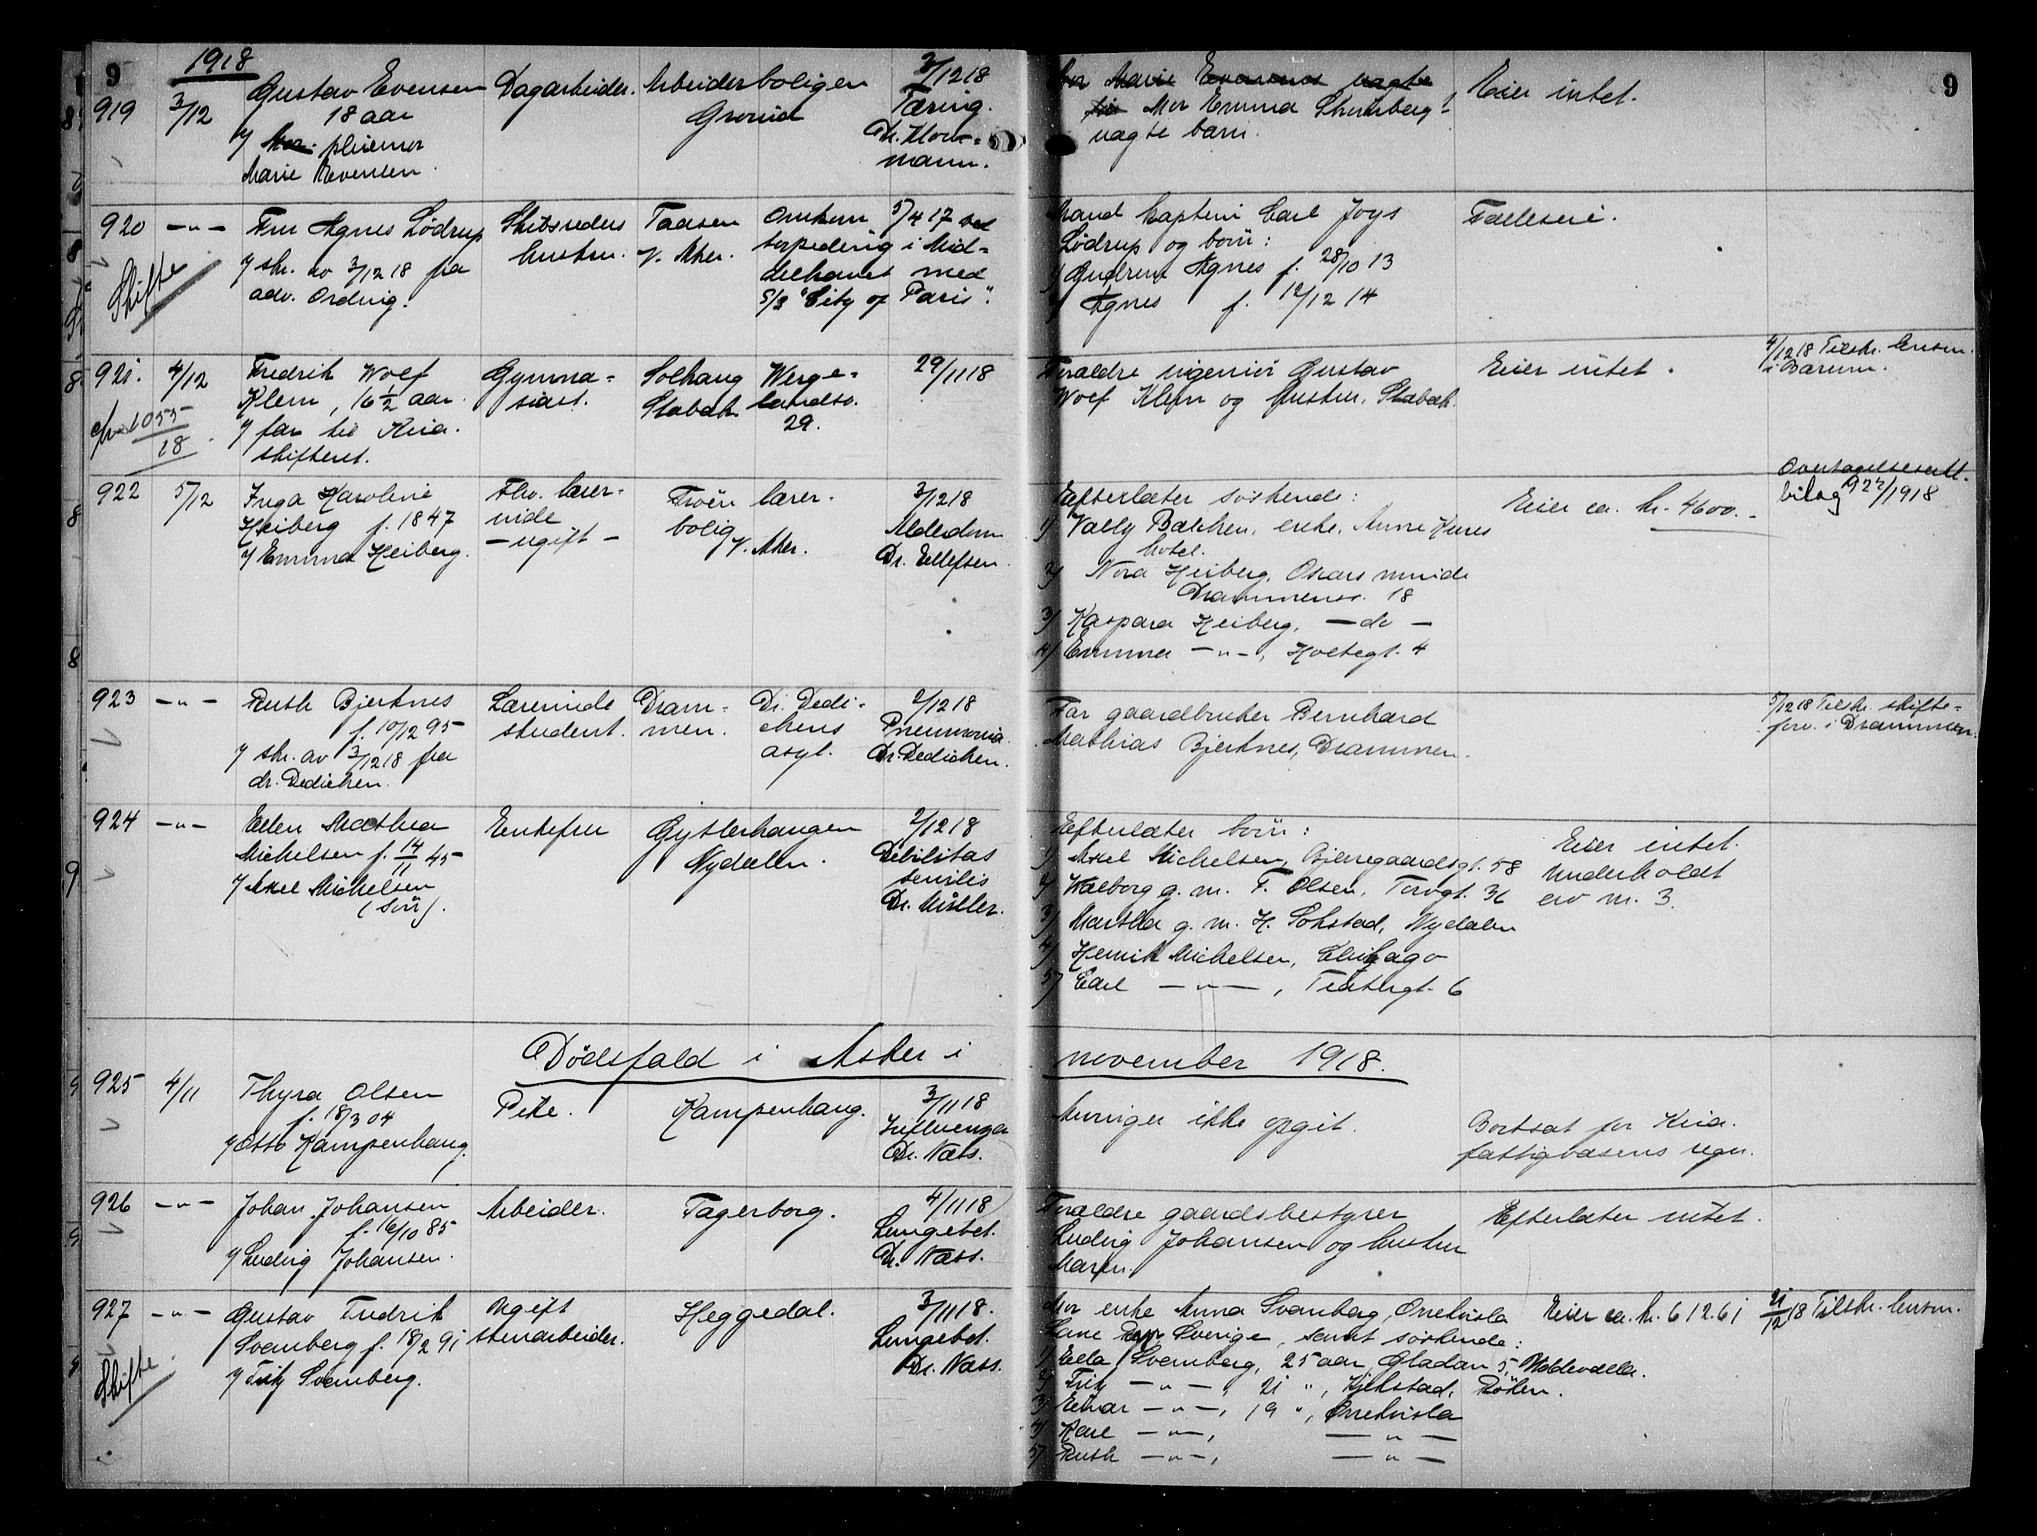 9
1918
919 3/12 Gustav Evensen Dagarbeider. Arbeiderboligen 3/12 18
18 aar Grorud Tæring.
v/ pleiemor Dr. Mohr=
Marie Evensen. mann.
Mor Emma
uægte barn.
Eier intet.
9
920 —"— Fru Agnes Lødrup Skibsreders Taasen Omkom 5/4 17 ved
v/ skr. av 3/12 18 fra hustru. V. Aker. torpedering i Mid=
adv. Ording. delhavet med
S/S "City of Paris".
Skifte
Mand kaptein Carl Joys
Lødrup og børn:
1/ Gudrun Agnes f. 28/10 13
2/ Agnes f. 12/12 14
Fælleseie.
921. 4/12 Fredrik Wolf Gymna= Solhaug Werge= 29/11 18
Klem, 16 1/2 aar. siast. Stabæk landsv.
v/ far til Kria. 29.
skifteret.
1055
18
Forældre ingeniør Gustav
Wolf Klem og hustru, Stabæk.
Eier intet.
4/12 18 Tilskr. lensm.
i Bærum.
922 5/12 Inga Karoline Fhv. lærer= Frøen lærer- 3/12 18
Heiberg f. 1847 inde bolig Alderdom
v/ Emma Heiberg. —ugift— V. Aker. Dr. Ellefsen.
Efterlater søskende:
1/ Vally Balchen, enke, Anne Kures
hotel.
2/ Nora Heiberg, Oscars minde
Drammensv. 18
3/ Kaspara Heiberg, —do—
4/ Emma —"—, Holtegt. 4
Eier ca. kr. 4600.-
Overtagelseserkl.
bilag 922/1918
923 —"— Ruth Bjerknes Lærerinde Dram= Dr. Dedi= 2/12 18
f. 10/12 95 student. men. chens Pneumonia.
v/ skr. av 3/12 18 fra asyl. Dr. Dedichen.
dr. Dedichen.
Far gaardbruker Bernhard
Mathias Bjerknes, Drammen.
5/12 18 Tilskr. skifte=
forv. i Drammen.
924 —"— Ellen Mathea Enkefru Gytterhaugen 2/12 18
Michelsen f. 14/11 45 Nydalen. Debilitas
v/ Axel Michelsen senilis
(søn). Dr. Müller.
Efterlater børn:
1/ Axel Michelsen, Bjerregaardsgt. 58
2/ Valborg g. m. F. Olsen, Torvgt. 36
3/ Martha g. m. H. Sokstad, Nydalen
4/ Henrik Michelsen, Chicago
5/ Carl —"—, Teatergt. 6
Eier intet.
Underholdt
av nr. 3.
Dødsfald i Asker i november 1918.
925 4/11 Thyra Olsen Pike. Kampenhaug. 3/11 18
f. 18/3 04 Influenza
v/ Otto Kampenhaug. Dr. Næss.
Arvinger ikke opgit.
Bortsat for Kria.
fattigvæsens regn.
926 —"— Johan Johansen Arbeider. Fagerborg. 4/11 18
f. 16/10 85 Lungebet.
v/ Ludvig Johansen. Dr. Næss.
Forældre gaardsbestyrer
Ludvig Johansen og hustru
Maren.
Efterlater intet.
927 —"— Gustav Fredrik Ugift Heggedal. 3/11 18.
Svanberg f. 18/2 91 stenarbeider. Lungebet.
v/ Fritz Svanberg. Dr. Næss.
Skifte
Mor enke Anna Svanberg, Ørrekvisla
Lane Sverige, samt søskende:
1/ Ella Svanberg, 25 aar, Gladan 5, Uddevalla.
2/ Fritz —"—, 21 ", Kjekstad, Røken.
3/ Einar —"—, 19 ", Ørrekvisla
4/ Karl —"—, —"—
5/ Ruth —"—, —"—
Eier ca. kr. 612.61
21/12 18 Tilskr. lensm.